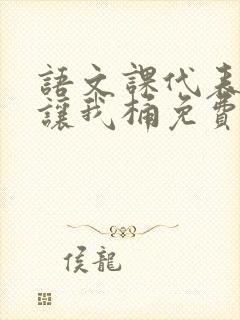 語文課代表
讓我桶免費
侯龍